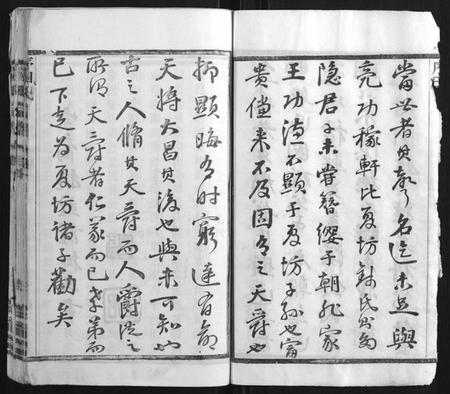 當世者其聲名迄未足與
亮功稼軒比夏坊錢氏固多
隱君子未嘗簪纓于朝非家
王功德不顯于夏坊子孫也富
貴儻來不及固有之天爵也
抑顯晦有時窮達有命
天將大昌其後也與未可知也
古之人脩其天爵而人爵從之
所謂天爵者仁義而已孝弟而
已下走為夏坊諸子勸矣